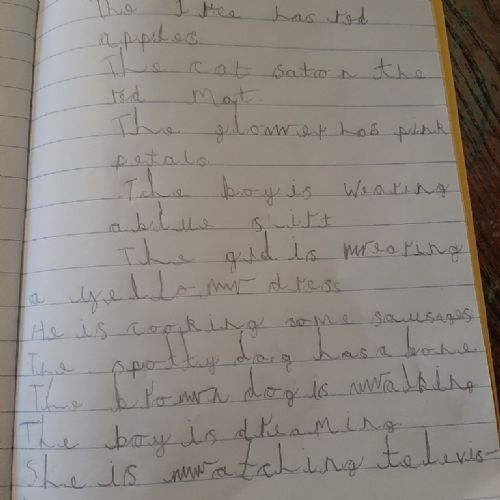 The Tree has red
apples
The cat sat on the
red Mat.
The flower has pink
petals
The boy is Wearing
a blue shirt
The girl is wearing
a yellow dress
He is cooking some sausages
The spotty dog has a bone
The brown dog is walking
The boy is dreaming.
She is watching televis-